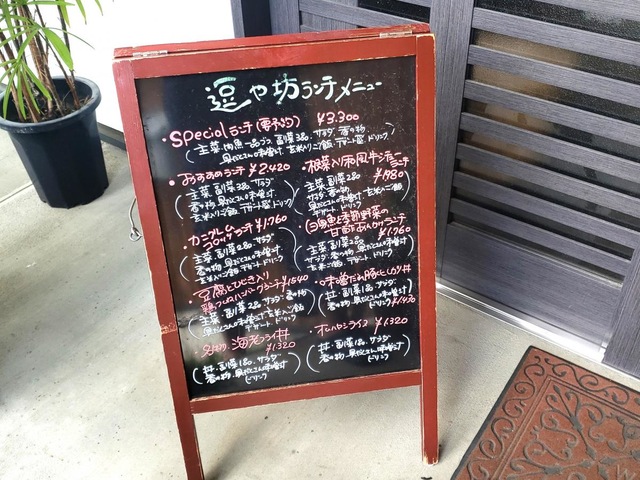 逗や坊ランチメニュー
・Specialランチ(要予約) ¥3.300
(主菜 肉魚一品ずつ 副菜3品 サラダ 香の物
具だくさんの味噌汁 玄米入りご飯 デザート ドリンク)
・おすすめランチ ¥2.420
(主菜 副菜3品 サラダ
香の物 具だくさんの味噌汁
玄米入りご飯 デザート ドリンク)
・カニクリームコロッケランチ ¥1.760
(主菜 副菜2品 サラダ
香の物 具だくさんの味噌汁
玄米入りご飯 デザート ドリンク)
・豆腐とひじき入り
鶏つくねハンバーグランチ ¥1540
(主菜 副菜2品 サラダ 香の物
具だくさんの味噌汁 玄米入りご飯
デザート ドリンク)
海老フライ丼
¥1.320
(丼・副菜1品 サラダ
香の物 具だくさん味噌汁
ドリンク)
・根菜入り和風牛シチュー
ランチ
¥1.980
(主菜 副菜2品
サラダ 香の物
具だくさんの味噌汁 玄米入りご飯
デザート ドリンク)
・白身魚と季節野菜の
甘酢あんかけランチ
¥1.760
(主菜 副菜2品 サラダ
香の物 具だくさんの味噌汁
玄米ご飯 デザート ドリンク)
・味噌だれ豚ヒレカツ丼
(丼・副菜1品 サラダ
香の物 具だくさんの味噌汁
ドリンク)
・オムハヤシライス ¥1.320
(副菜1品 サラダ
香の物 具だくさん味噌汁
ドリンク)